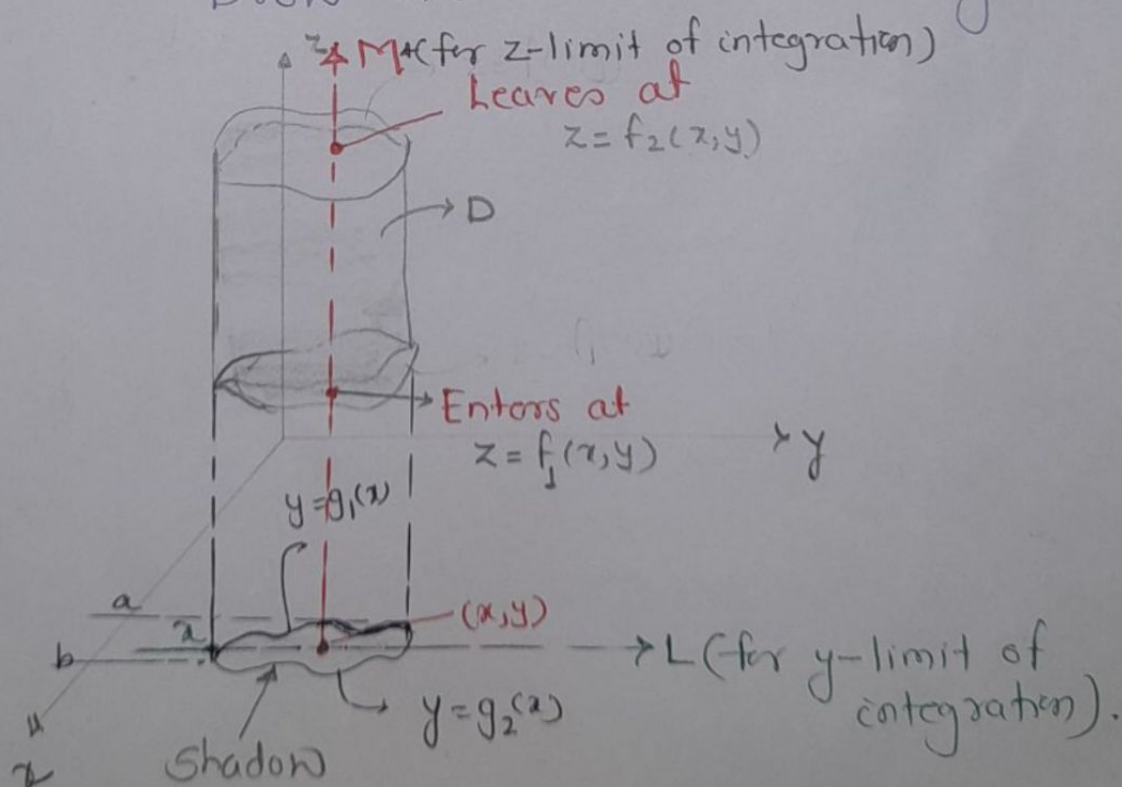 z M (for z-limit of integration)
Leaves at
z = f₂(x, y)
D
Enters at
z = f₁(x, y)
y
y = g₁(x)
a
(x, y)
x
b
L (for y-limit of
integration).
y = g₂(x)
x
Shadow